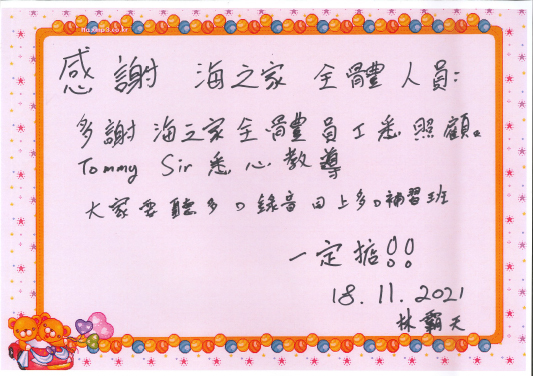 感謝 海之家 全體人員:
多謝海之家全體員工悉照顧。
Tommy Sir 悉心教導
大家要聽多D錄音田上多D補習班
一定掂!!
18.11.2021
林霸天